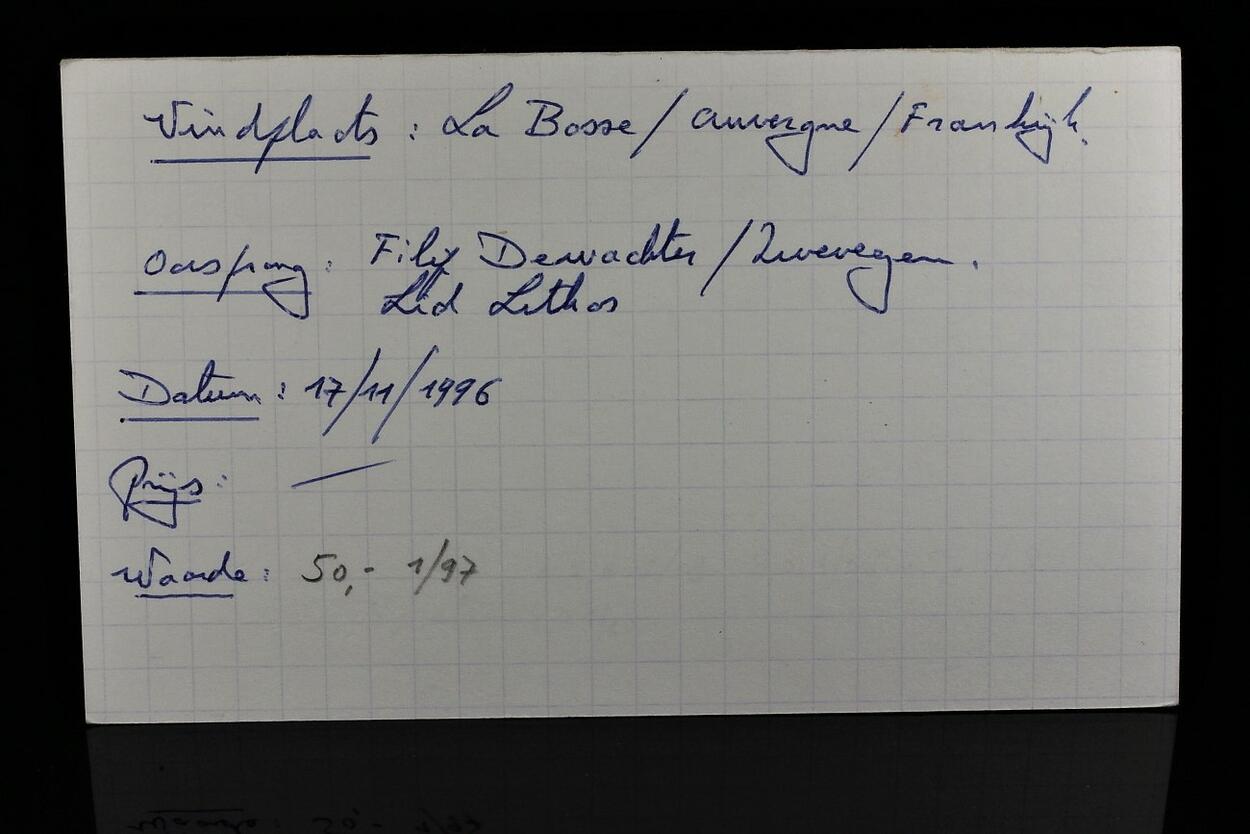 Vindplaats : La Bosse / Auvergne / Frankrijk.
Oorsprong : Filip Dewachter / Zwevegem.
Lid Lithos
Datum : 17/11/1996
Prijs : —
Waarde : 50,- 1/97